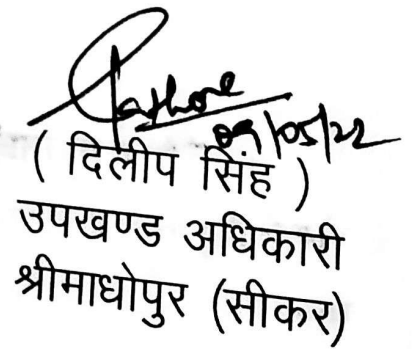 Rathore
09/05/22
( दिलीप सिंह )
उपखण्ड अधिकारी
श्रीमाधोपुर (सीकर)